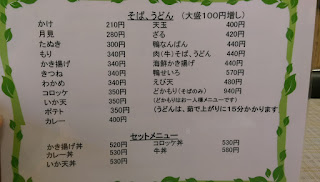 そば、うどん (大盛100円増し)
かけ 210円
月見 280円
たぬき 300円
もり 340円
かき揚げ 340円
きつね 340円
わかめ 340円
コロッケ 350円
いか天 350円
ポテト 350円
カレー 400円
天玉 400円
ざる 420円
鴨なんばん 440円
肉(牛)そば、うどん 440円
海鮮かき揚げ 440円
鴨せいろ 570円
えび天 480円
どかもり(そばのみ) 940円
(どかもりはお一人様メニューです)
(うどんは、茹で上がりに15分かかります)
セットメニュー
かき揚げ丼 520円
カレー丼 530円
いか天丼 560円
コロッケ丼 530円
牛丼 560円